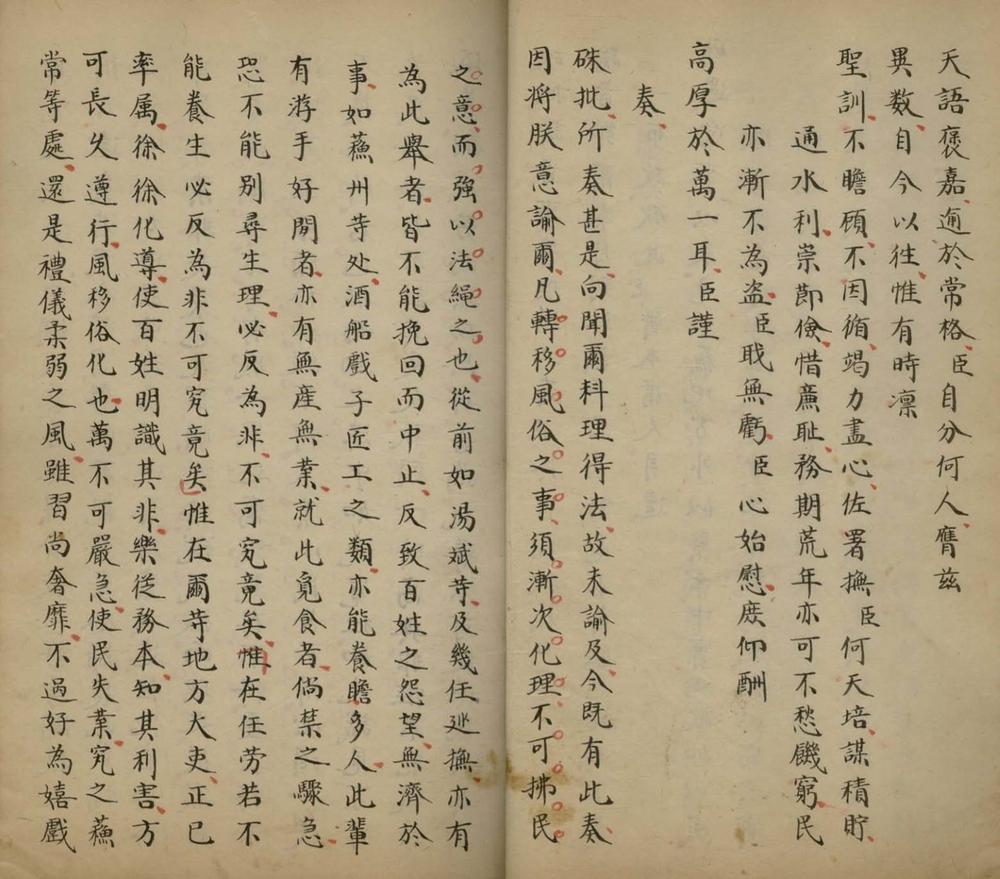 天語褒嘉逈於常格臣自分何人膺兹
異数自今以徃惟有時凛
聖訓不瞻顧不因循竭力盡心佐署撫臣何天培謀積貯
通水利崇節儉惜廉耻務期荒年亦可不愁饑窮民
亦漸不為盗臣職無虧臣心始慰庶仰酬
高厚於萬一耳臣謹
奏
硃批所奏甚是向聞爾料理得法故未諭及今既有此奏
因将朕意諭爾凡轉移風俗之事須漸次化理不可拂民
之意而強以法繩之也從前如湯斌䓁及幾任廵撫亦有
為此舉者皆不能挽回而中止反致百姓之怨望無濟於
事如蘓州䓁处酒船戲子匠工之類亦能養贍多人此輩
有游手好閒者亦有無產無業就此覓食者倘禁之驟急
恐不能别尋生理必反為非不可究竟矣惟在任劳若不
能養生必反為非不可究竟矣惟在爾䓁地方大吏正已
率属徐徐化導使百姓明識其非樂從務本知其利害方
可長久遵行風移俗化也萬不可嚴急使民失業究之蘓
常等處還是禮儀柔弱之風雖習尚奢靡不過好為嬉戲